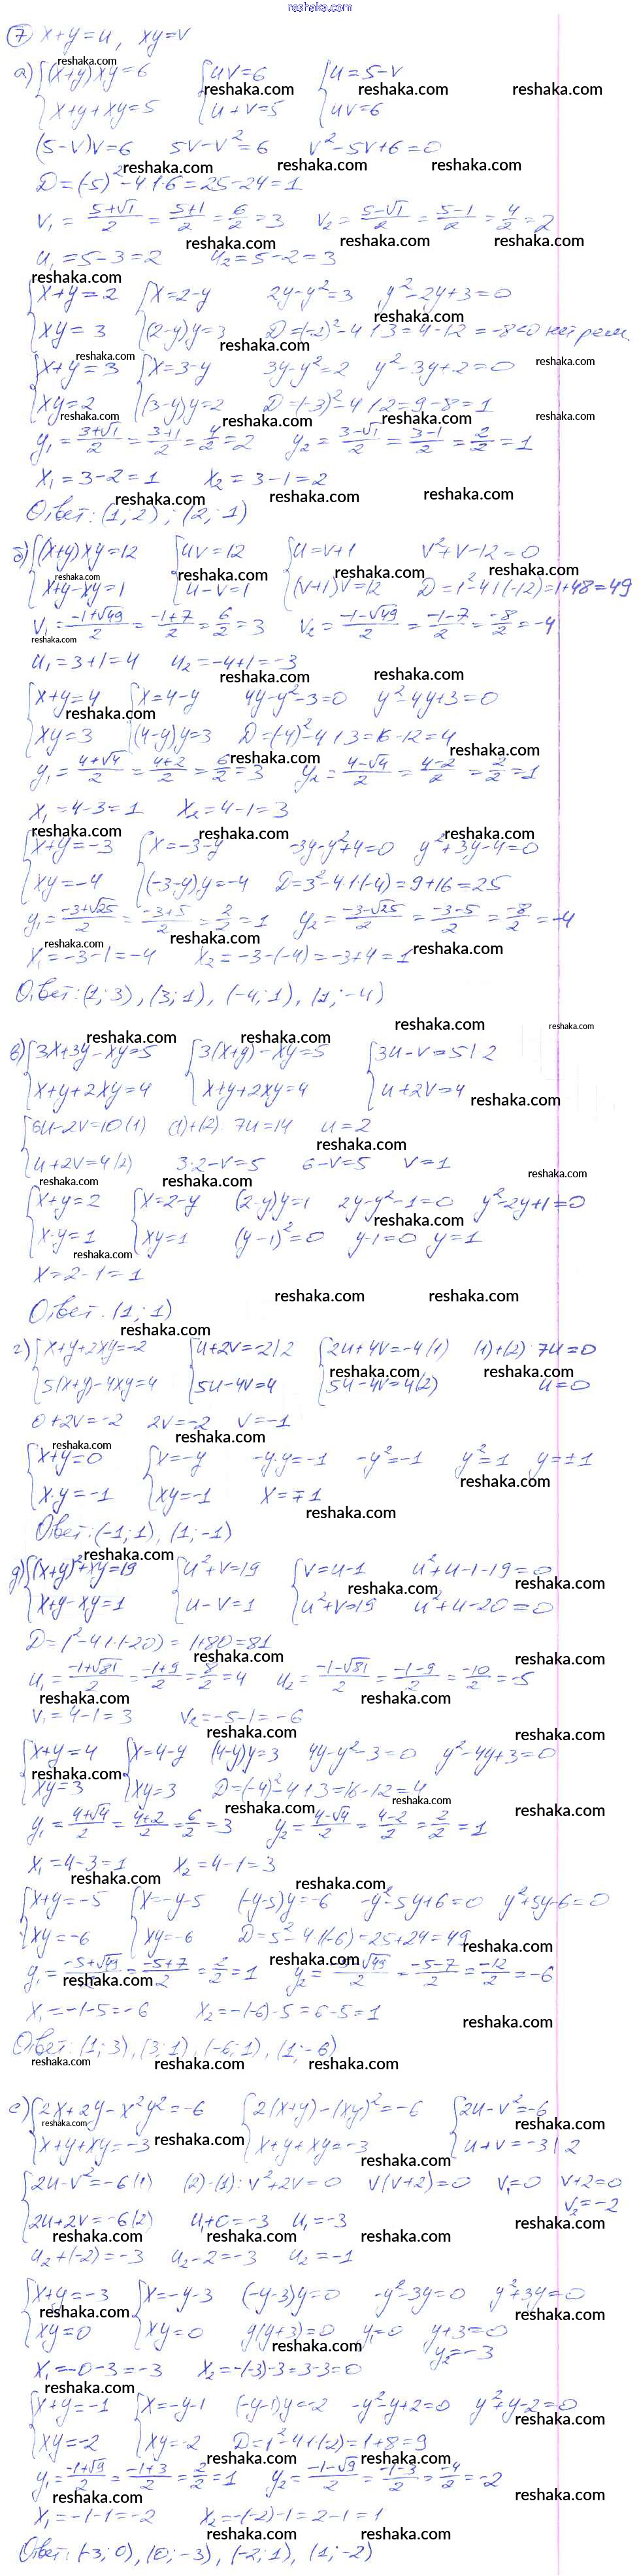 reshaka.com
7 x+y=u, xy=v
а) {(x+y)xy=6 {uv=6 {u=5-v
x+y+xy=5 u+v=5 uv=6
(5-v)v=6 5v-v²=6 v²-5v+6=0
D=(-5)²-4·1·6=25-24=1
v₁=(5+√1)/2=(5+1)/2=6/2=3 v₂=(5-√1)/2=(5-1)/2=4/2=2
u₁=5-3=2 u₂=5-2=3
{x+y=2 {x=2-y 2y-y²=3 y²-2y+3=0
xy=3 (2-y)y=3 D=(-2)²-4·1·3=4-12=-8<0 нет реш.
{x+y=3 {x=3-y 3y-y²=2 y²-3y+2=0
xy=2 (3-y)y=2 D=(-3)²-4·1·2=9-8=1
y₁=(3+√1)/2=(3+1)/2=4/2=2 y₂=(3-√1)/2=(3-1)/2=2/2=1
x₁=3-2=1 x₂=3-1=2
Ответ: (1; 2); (2; 1)
б) {(x+y)xy=12 {uv=12 {u=v+1 v²+v-12=0
x+y-xy=1 u-v=1 (v+1)v=12 D=1²-4·1·(-12)=1+48=49
v₁=(-1+√49)/2=(-1+7)/2=6/2=3 v₂=(-1-√49)/2=(-1-7)/2=-8/2=-4
u₁=3+1=4 u₂=-4+1=-3
{x+y=4 {x=4-y 4y-y²-3=0 y²-4y+3=0
xy=3 (4-y)y=3 D=(-4)²-4·1·3=16-12=4
y₁=(4+√4)/2=(4+2)/2=6/2=3 y₂=(4-√4)/2=(4-2)/2=2/2=1
x₁=4-3=1 x₂=4-1=3
{x+y=-3 {x=-3-y -3y-y²+4=0 y²+3y-4=0
xy=-4 (-3-y)y=-4 D=3²-4·1·(-4)=9+16=25
y₁=(-3+√25)/2=(-3+5)/2=2/2=1 y₂=(-3-√25)/2=(-3-5)/2=-8/2=-4
x₁=-3-1=-4 x₂=-3-(-4)=-3+4=1
Ответ: (1; 3), (3; 1), (-4; 1), (1; -4)
в) {3x+3y-xy=5 {3(x+y)-xy=5 {3u-v=5 |·2
x+y+2xy=4 x+y+2xy=4 u+2v=4
{6u-2v=10 (1) (1)+(2) 7u=14 u=2
u+2v=4 (2) 3·2-v=5 6-v=5 v=1
{x+y=2 {x=2-y (2-y)y=1 2y-y²-1=0 y²-2y+1=0
x·y=1 xy=1 (y-1)²=0 y-1=0 y=1
x=2-1=1
Ответ. (1; 1)
г) {x+y+2xy=-2 {u+2v=-2 |·2 {2u+4v=-4 (1) (1)+(2) 7u=0
5(x+y)-4xy=4 5u-4v=4 5u-4v=4 (2) u=0
0+2v=-2 2v=-2 v=-1
{x+y=0 {x=-y -y·y=-1 -y²=-1 y²=1 y=±1
x·y=-1 xy=-1 x=∓1
Ответ: (-1; 1), (1; -1)
д) {(x+y)²+xy=19 {u²+v=19 {v=u-1 u²+u-1-19=0
x+y-xy=1 u-v=1 u²+v=19 u²+u-20=0
D=1²-4·1·(-20)=1+80=81
u₁=(-1+√81)/2=(-1+9)/2=8/2=4 u₂=(-1-√81)/2=(-1-9)/2=-10/2=-5
v₁=4-1=3 v₂=-5-1=-6
{x+y=4 {x=4-y (4-y)y=3 4y-y²-3=0 y²-4y+3=0
xy=3 xy=3 D=(-4)²-4·1·3=16-12=4
y₁=(4+√4)/2=(4+2)/2=6/2=3 y₂=(4-√4)/2=(4-2)/2=2/2=1
x₁=4-3=1 x₂=4-1=3
{x+y=-5 {x=-y-5 (-y-5)y=-6 -y²-5y+6=0 y²+5y-6=0
xy=-6 xy=-6 D=5²-4·1·(-6)=25+24=49
y₁=(-5+√49)/2=(-5+7)/2=2/2=1 y₂=(-5-√49)/2=(-5-7)/2=-12/2=-6
x₁=-1-5=-6 x₂=-(-6)-5=6-5=1
Ответ: (1; 3), (3; 1), (-6; 1), (1; -6)
е) {2x+2y-x²y²=-6 {2(x+y)-(xy)²=-6 {2u-v²=-6
x+y+xy=-3 x+y+xy=-3 u+v=-3 |·2
{2u-v²=-6 (1) (2)-(1): v²+2v=0 v(v+2)=0 v₁=0 v+2=0
v₂=-2
2u+2v=-6 (2) u₁+0=-3 u₁=-3
u₂+(-2)=-3 u₂-2=-3 u₂=-1
{x+y=-3 {x=-y-3 (-y-3)y=0 -y²-3y=0 y²+3y=0
xy=0 xy=0 y(y+3)=0 y₁=0 y+3=0
y₂=-3
x₁=-0-3=-3 x₂=-(-3)-3=3-3=0
{x+y=-1 {x=-y-1 (-y-1)y=-2 -y²-y+2=0 y²+y-2=0
xy=-2 xy=-2 D=1²-4·1·(-2)=1+8=9
y₁=(-1+√9)/2=(-1+3)/2=2/2=1 y₂=(-1-√9)/2=(-1-3)/2=-4/2=-2
x₁=-1-1=-2 x₂=-(-2)-1=2-1=1
Ответ: (-3; 0), (0; -3), (-2; 1), (1; -2)